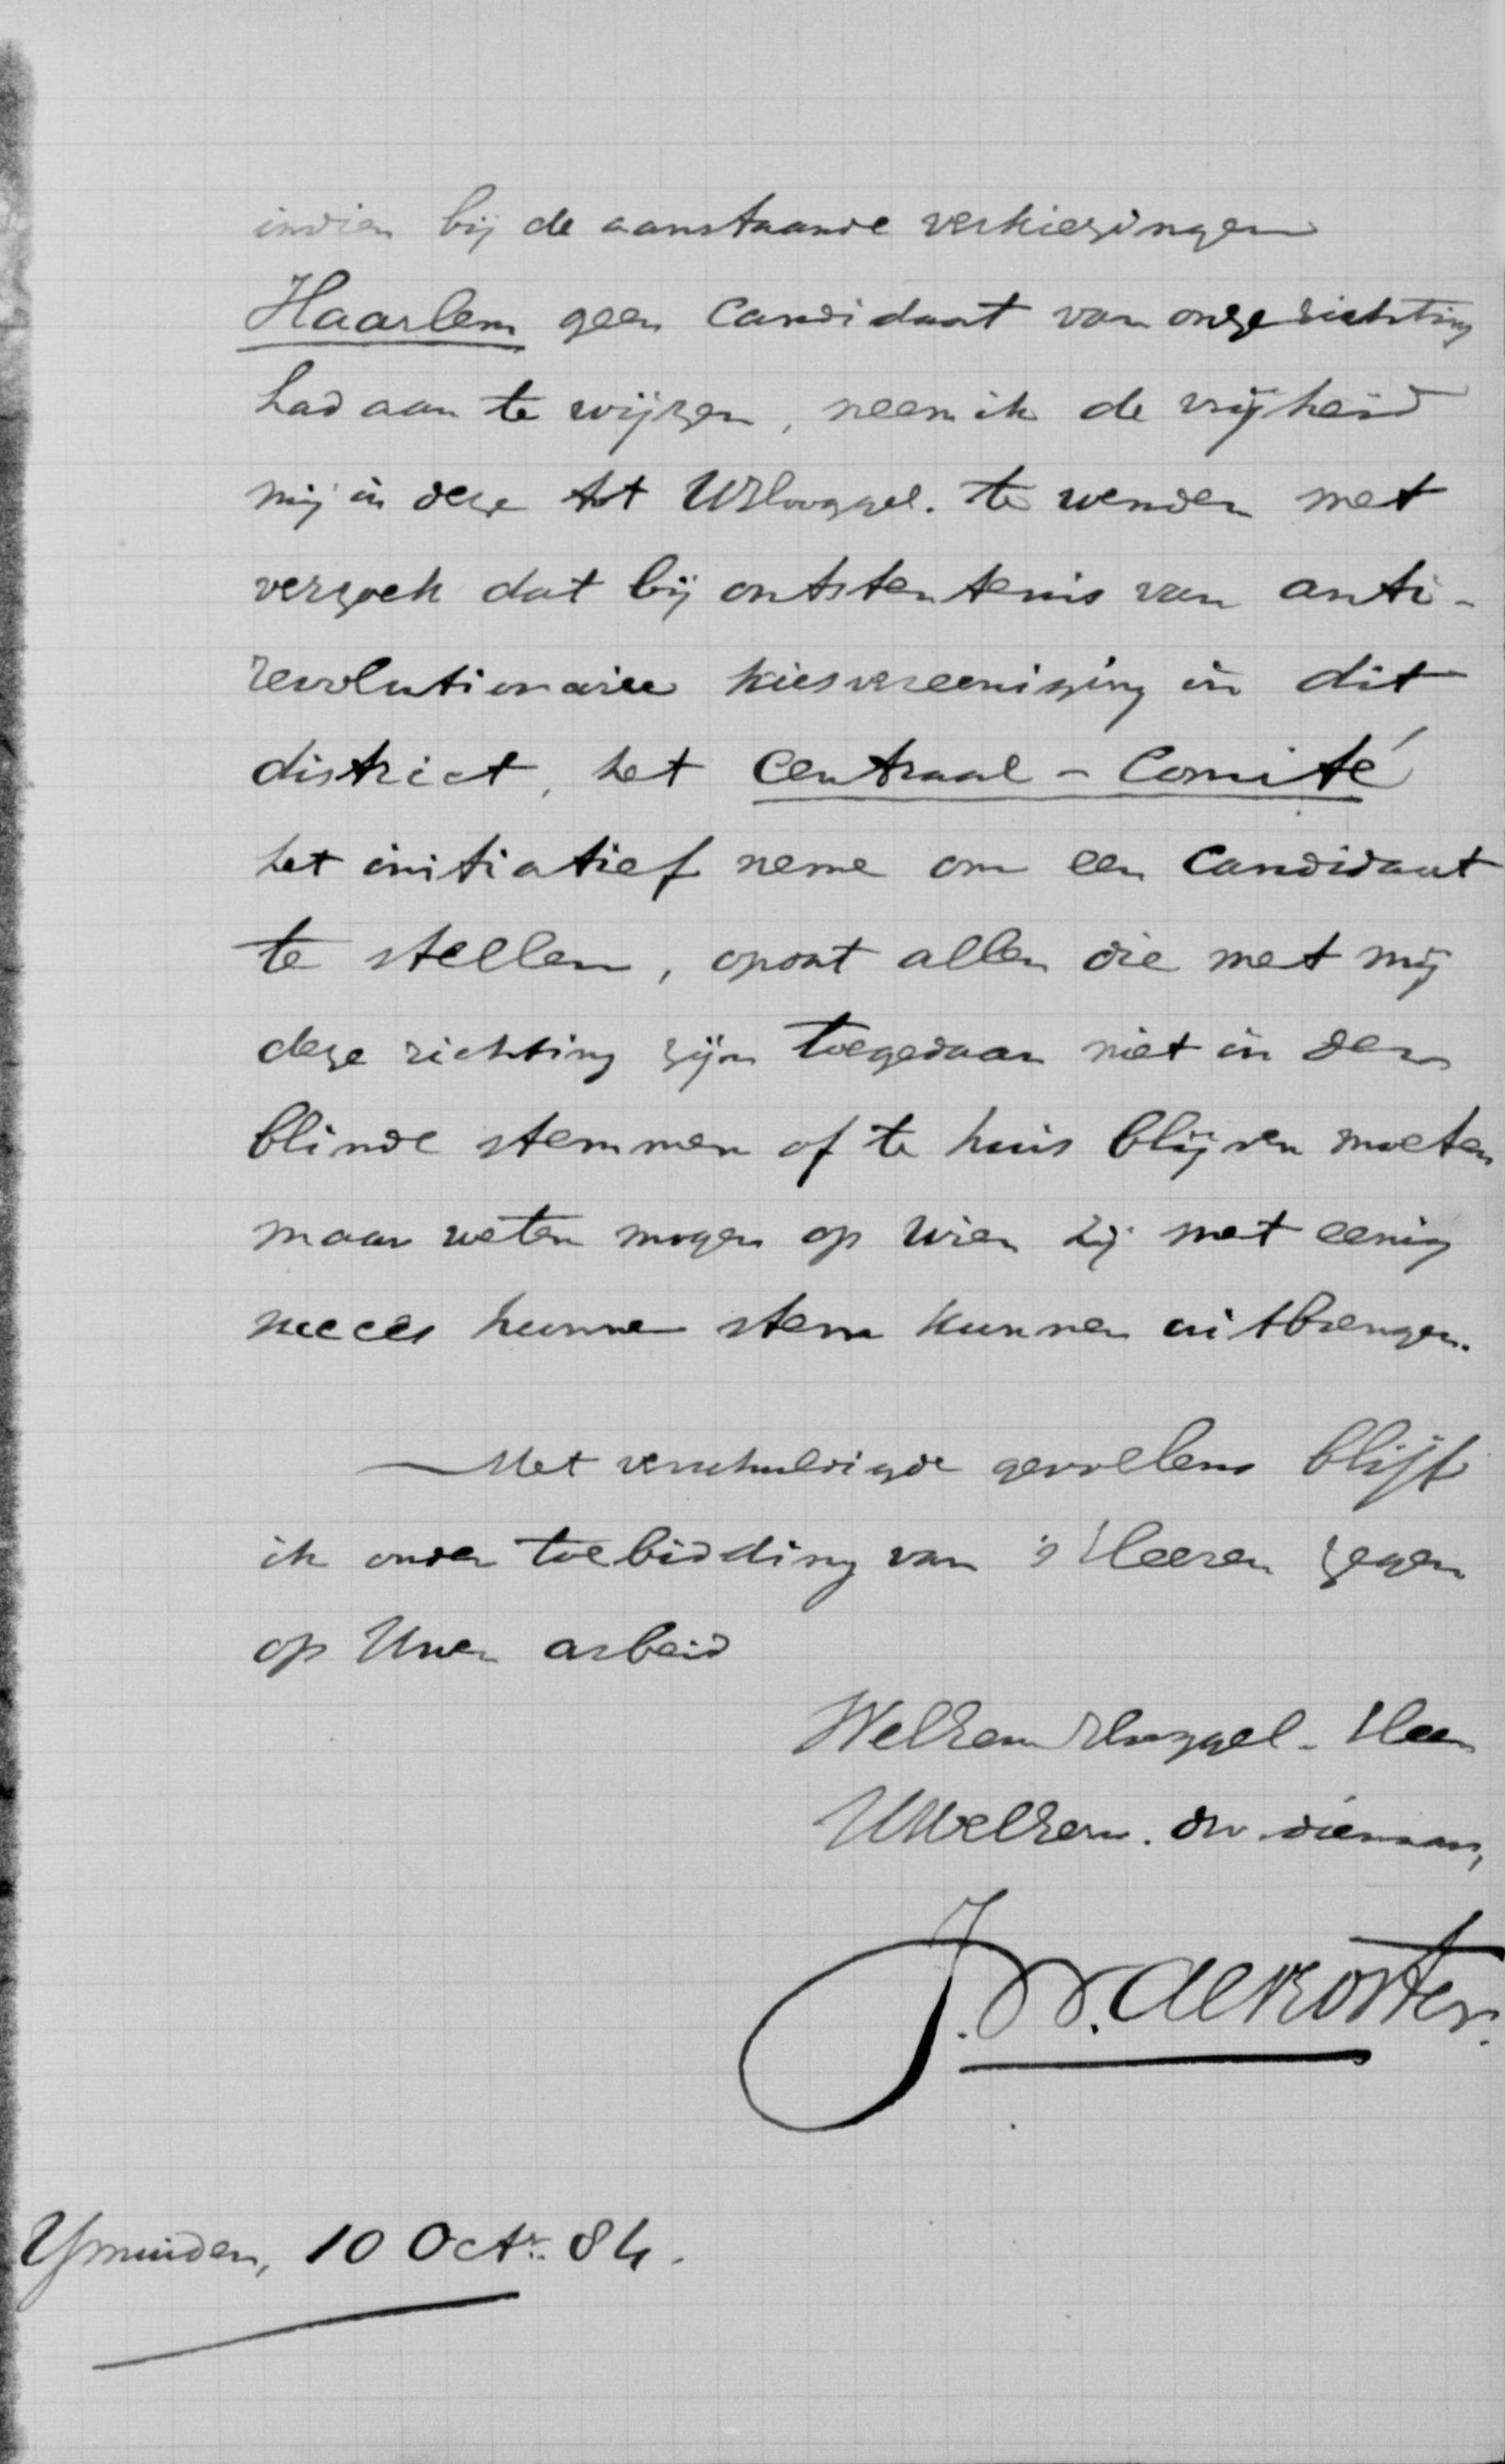 indien bij de aanstaande verkiezingen
Haarlem geen Candidaat van onze richting
had aan te wijzen, neem ik de vrijheid
mij in deze tot UHooggel. te wenden met
verzoek dat bij ontstentenis van anti-
revolutionaire kiesvereeniging in dit
district, het Centraal-Comité
het initiatief neme om een Candidaat
te stellen, opdat allen die met mij
deze richting zijn toegedaan niet in den
blinde stemmen of te huis blijven moeten
maar weten mogen op wien zij met eenig
succes hunne stem kunnen uitbrengen.
Met verschuldigde gevoelens blijf
ik onder toebidding van 's Heeren zegen
op Uwen arbeid
WelEerw Hooggel. Heer
UWelEerw. dw. dienaar,
J. W. de Koster.
Ymuiden, 10 Octr. 84.